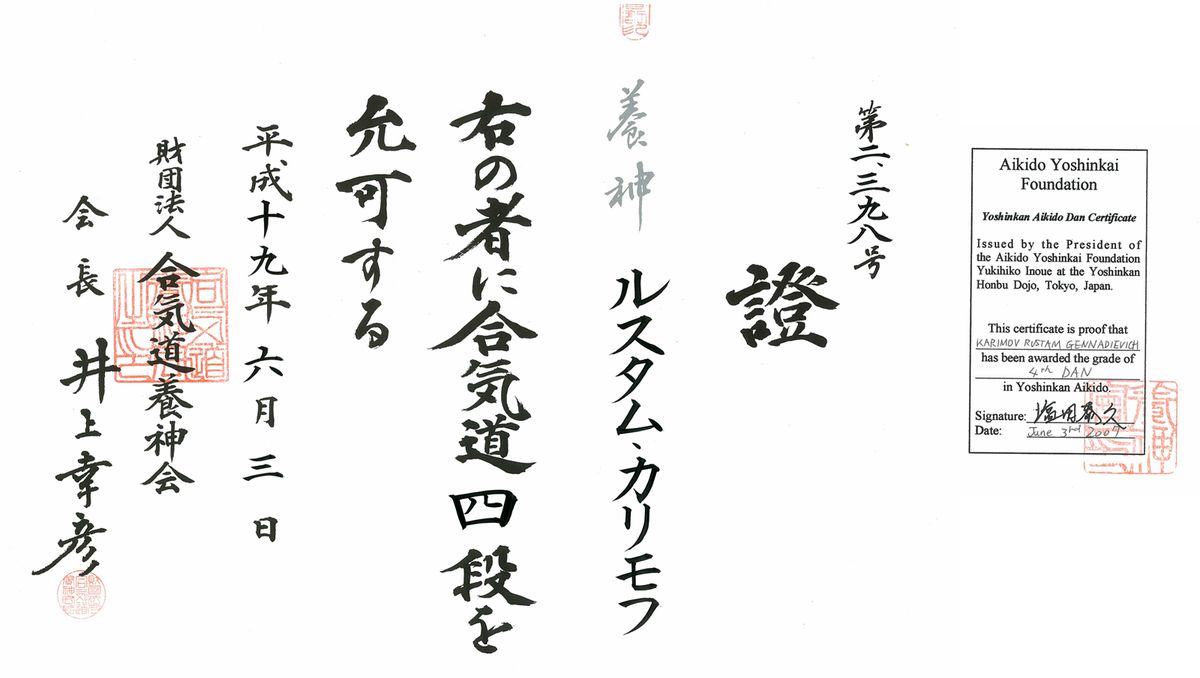 第二、三九八号
證
養神
ルスタム、カリモフ
右の者に合気道四段を
允可する
平成十九年六月三日
財団法人 合気道養神会
会長 井上幸彦
Aikido Yoshinkai
Foundation
Yoshinkan Aikido Dan Certificate
Issued by the President of
the Aikido Yoshinkai Foundation
Yukihiko Inoue at the Yoshinkan
Honbu Dojo, Tokyo, Japan.
This certificate is proof that
KARIMOV RUSTAM GENNADIEVICH
has been awarded the grade of
4th DAN
in Yoshinkan Aikido.
Signature:
Date: June 3rd 2007